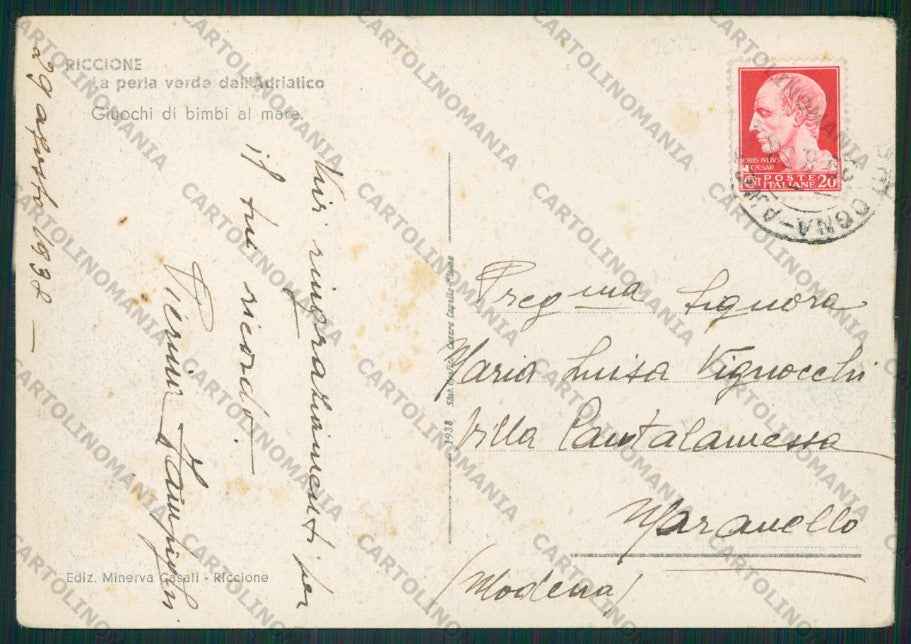 RICCIONE
La perla verde dell'Adriatico
Giuochi di bimbi al mare.
29 agosto 1938 —
Vivi ringraziamenti per
il tuo ricordo
Ediz. Minerva Casali - Riccione
1938
CAIVS IVLIVS
CAESAR
POSTE
ITALIANE 20
Preg.ma Signora
Maria Luisa Vignocchi
Villa Pantalamessa
Maranello
(Modena)
CARTOLINOMANIA